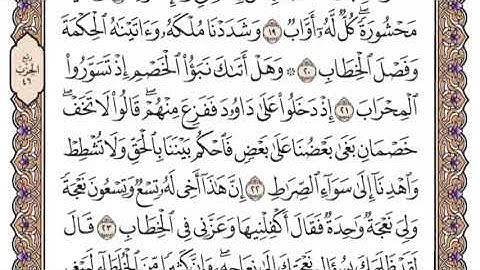 مَحْشُورَةً ۖ كُلٌّ لَّهُۥٓ أَوَّابٌ ١٩ وَشَدَدْنَا مُلْكَهُۥ وَءَاتَيْنَٰهُ ٱلْحِكْمَةَ
وَفَصْلَ ٱلْخِطَابِ ٢٠ ۞ وَهَلْ أَتَىٰكَ نَبَؤُا۟ ٱلْخَصْمِ إِذْ تَسَوَّرُوا۟
ٱلْمِحْرَابَ ٢١ إِذْ دَخَلُوا۟ عَلَىٰ دَاوُۥدَ فَفَزِعَ مِنْهُمْ ۖ قَالُوا۟ لَا تَخَفْ ۖ
خَصْمَانِ بَغَىٰ بَعْضُنَا عَلَىٰ بَعْضٍ فَٱحْكُم بَيْنَنَا بِٱلْحَقِّ وَلَا تُشْطِطْ
وَٱهْدِنَآ إِلَىٰ سَوَآءِ ٱلصِّرَٰطِ ٢٢ إِنَّ هَٰذَآ أَخِى لَهُۥ تِسْعٌ وَتِسْعُونَ نَعْجَةً
وَلِىَ نَعْجَةٌ وَٰحِدَةٌ فَقَالَ أَكْفِلْنِيهَا وَعَزَّنِى فِى ٱلْخِطَابِ ٢٣ قَالَ
لَقَدْ ظَلَمَكَ بِسُؤَالِ نَعْجَتِكَ إِلَىٰ نِعَاجِهِۦ ۖ وَإِنَّ كَثِيرًا مِّنَ ٱلْخُلَطَآءِ لَيَبْغِى
ربع
الحزب
٤٦